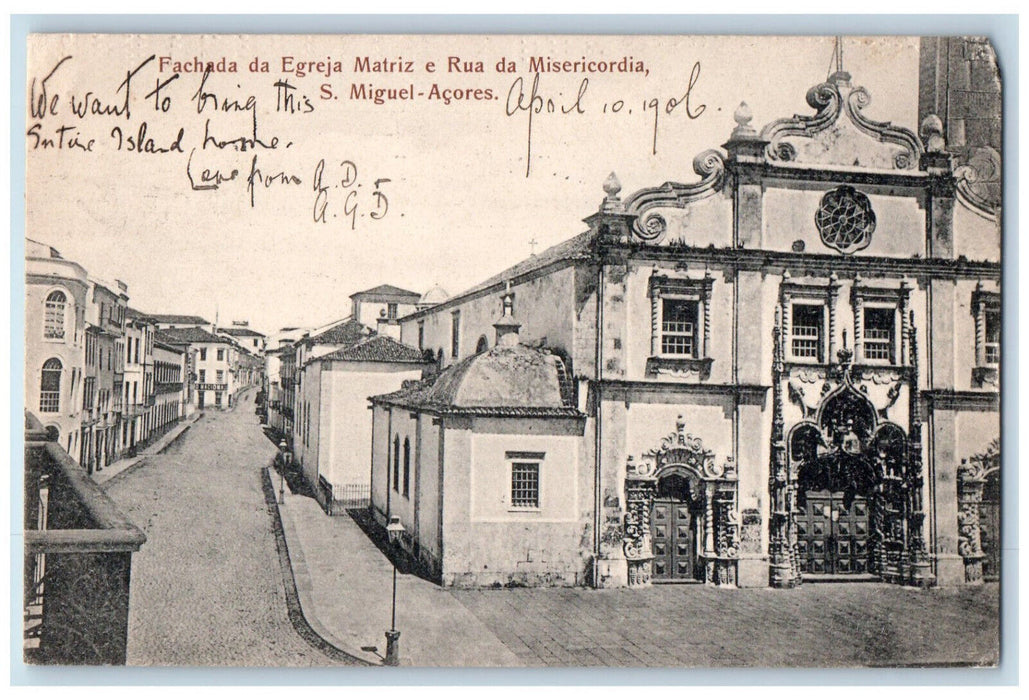 Fachada da Egreja Matriz e Rua da Misericordia,
S. Miguel-Açores.
We want to bring this
Entire Island home.
Love from A. D.
A. G. D.
April 10. 1906.